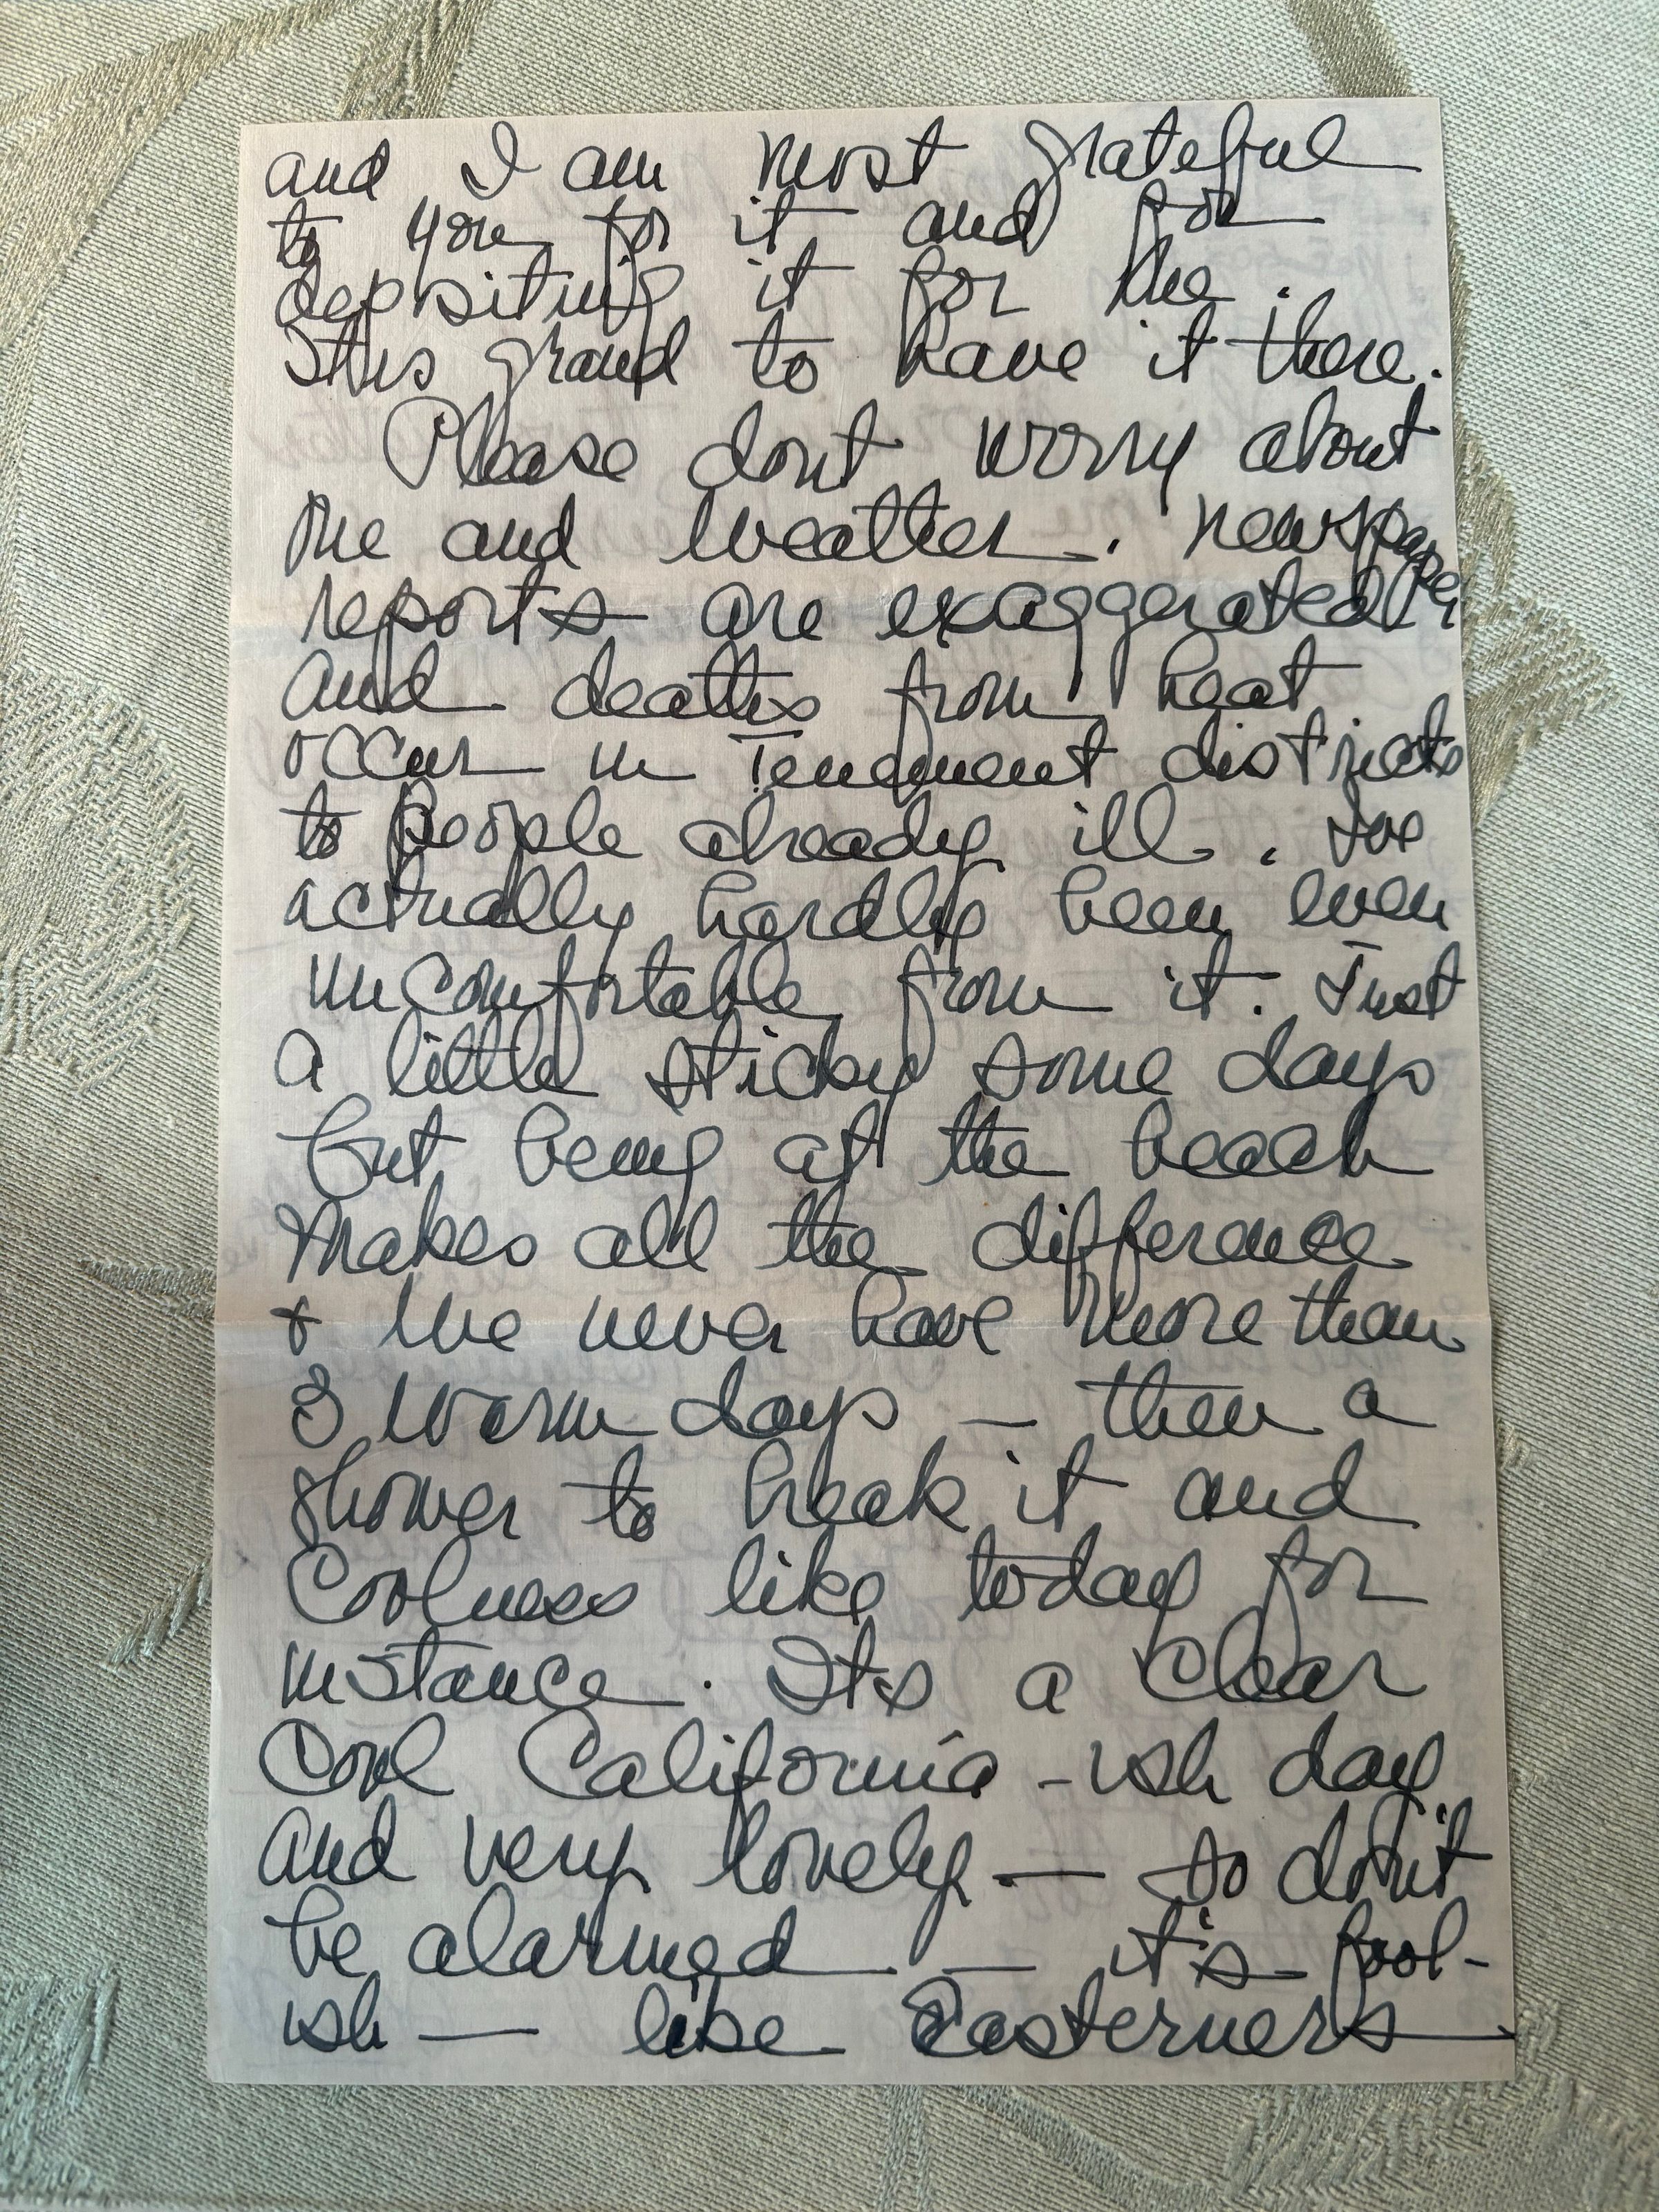 and I am most grateful
to you for it and for
depositing it for me.
Its grand to have it there.
Please dont worry about
me and weather. Newspaper
reports are exaggerated
and deaths from heat
occur in Tenement districts
to people already ill. Ive
actually hardly been even
uncomfortable from it. Just
a little sticky some days
but being at the beach
makes all the difference
& we never have more than
3 warm days — then a
shower to break it and
coolness like today for
instance. Its a clear
cool California-ish day
and very lovely — so don't
be alarmed — it's fool-
ish — like Easterners